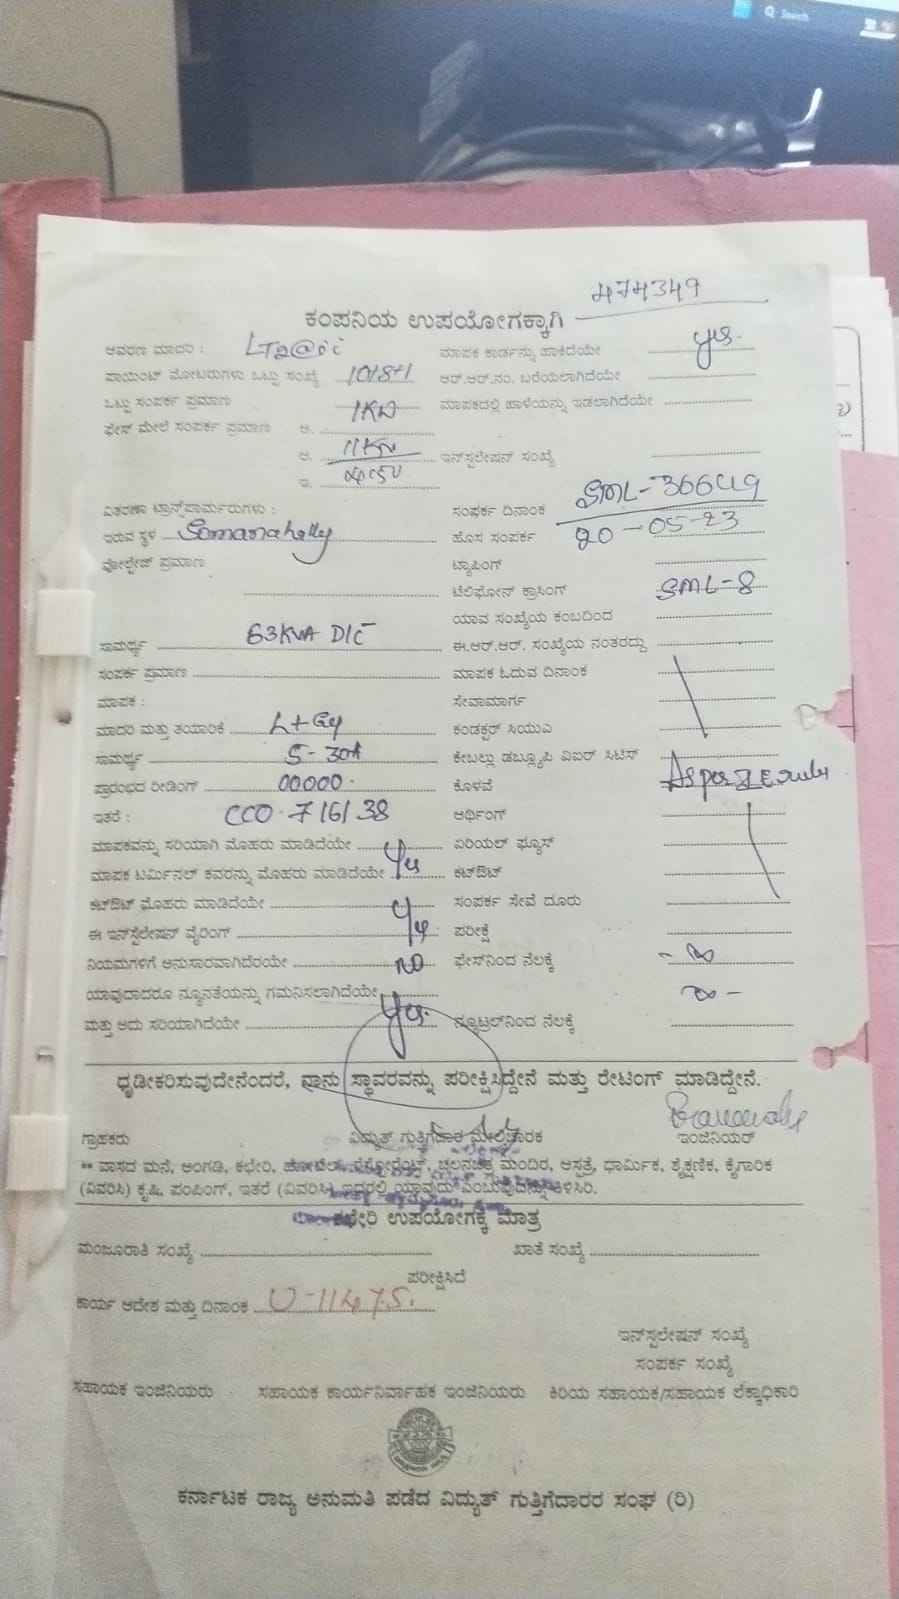 Search
474349
ಕಂಪನಿಯ ಉಪಯೋಗಕ್ಕಾಗಿ
ಆವರಣ ಮಾದರಿ : LT2@ic ಮಾಪಕ ಕಾರ್ಡನ್ನು ಹಾಕಿದೆಯೇ yes.
ಪಾಯಿಂಟ್ ಮೋಟರುಗಳು ಒಟ್ಟು ಸಂಖ್ಯೆ ಆರ್.ಆರ್.ನಂ. ಬರೆಯಲಾಗಿದೆಯೇ
ಒಟ್ಟು ಸಂಪರ್ಕ ಪ್ರಮಾಣ 1KW ಮಾಪಕದಲ್ಲಿ ಹಾಳೆಯನ್ನು ಇಡಲಾಗಿದೆಯೇ
ಫೇಸ್ ಮೇಲೆ ಸಂಪರ್ಕ ಪ್ರಮಾಣ ಅ.
ಆ. ಇನ್‌ಸ್ಟಲೇಷನ್ ಸಂಖ್ಯೆ
ಇ.
ವಿತರಣಾ ಟ್ರಾನ್ಸ್‌ಫಾರ್ಮರುಗಳು : ಸಂಪರ್ಕ ದಿನಾಂಕ SML-36649
ಇರುವ ಸ್ಥಳ Somanahally ಹೊಸ ಸಂಪರ್ಕ 20-05-23
ವೋಲ್ಟೇಜ್ ಪ್ರಮಾಣ ಟ್ಯಾಪಿಂಗ್
ಟೆಲಿಫೋನ್ ಕ್ರಾಸಿಂಗ್ SML-8
ಯಾವ ಸಂಖ್ಯೆಯ ಕಂಬದಿಂದ
ಸಾಮರ್ಥ್ಯ 63KVA D/C ಈ.ಆರ್.ಆರ್. ಸಂಖ್ಯೆಯ ನಂತರದ್ದು
ಸಂಪರ್ಕ ಪ್ರಮಾಣ ಮಾಪಕ ಓದುವ ದಿನಾಂಕ
ಮಾಪಕ : ಸೇವಾಮಾರ್ಗ
ಮಾದರಿ ಮತ್ತು ತಯಾರಿಕೆ ಕಂಡಕ್ಟರ್ ಸಿಯುಎ
ಸಾಮರ್ಥ್ಯ 5-30A ಕೇಬಲ್ಲು ಡಬ್ಲ್ಯೂಪಿ ವಿಐಆರ್ ಸಿಟಿಸ್
ಪ್ರಾರಂಭದ ರೀಡಿಂಗ್ 00000. ಕೊಳವೆ As per I E rules
ಇತರೆ : CCO.716138 ಅರ್ಥಿಂಗ್
ಮಾಪಕವನ್ನು ಸರಿಯಾಗಿ ಮೊಹರು ಮಾಡಿದೆಯೇ ಏರಿಯಲ್ ಫ್ಯೂಸ್
ಮಾಪಕ ಟರ್ಮಿನಲ್ ಕವರನ್ನು ಮೊಹರು ಮಾಡಿದೆಯೇ yes ಕಟ್‌ಔಟ್
ಕಟ್‌ಔಟ್ ಮೊಹರು ಮಾಡಿದೆಯೇ ಸಂಪರ್ಕ ಸೇವೆ ದೂರು
ಈ ಇನ್‌ಸ್ಟಲೇಷನ್ ವೈರಿಂಗ್ yes ಪರೀಕ್ಷೆ
ನಿಯಮಗಳಿಗೆ ಅನುಸಾರವಾಗಿದೆರೆಯೇ NO ಫೇಸ್‌ನಿಂದ ನೆಲಕ್ಕೆ - ∞
ಯಾವುದಾದರೂ ನ್ಯೂನತೆಯನ್ನು ಗಮನಿಸಲಾಗಿದೆಯೇ ∞ -
ಮತ್ತು ಅದು ಸರಿಯಾಗಿದೆಯೇ yes. ನ್ಯೂಟ್ರಲ್‌ನಿಂದ ನೆಲಕ್ಕೆ
ಧೃಡೀಕರಿಸುವುದೇನೆಂದರೆ, ನಾನು ಸ್ಥಾವರವನ್ನು ಪರೀಕ್ಷಿಸಿದ್ದೇನೆ ಮತ್ತು ರೇಟಿಂಗ್ ಮಾಡಿದ್ದೇನೆ.
ಗ್ರಾಹಕರು ವಿದ್ಯುತ್ ಗುತ್ತಿಗೆದಾರ ಮೇಲ್ವಿಚಾರಕ ಇಂಜಿನಿಯರ್
** ವಾಸದ ಮನೆ, ಅಂಗಡಿ, ಕಛೇರಿ, ಹೋಟೆಲ್, ರೆಸ್ಟೋರೆಂಟ್, ಚಲನಚಿತ್ರ ಮಂದಿರ, ಆಸ್ಪತ್ರೆ, ಧಾರ್ಮಿಕ, ಶೈಕ್ಷಣಿಕ, ಕೈಗಾರಿಕ
(ವಿವರಿಸಿ) ಕೃಷಿ, ಪಂಪಿಂಗ್, ಇತರೆ (ವಿವರಿಸಿ) ಇದರಲ್ಲಿ ಯಾವುದು ಎಂಬುವುದನ್ನು ತಿಳಿಸಿರಿ.
ಕಛೇರಿ ಉಪಯೋಗಕ್ಕೆ ಮಾತ್ರ
ಮಂಜೂರಾತಿ ಸಂಖ್ಯೆ ಖಾತೆ ಸಂಖ್ಯೆ
ಪರೀಕ್ಷಿಸಿದೆ
ಕಾರ್ಯ ಆದೇಶ ಮತ್ತು ದಿನಾಂಕ
ಇನ್‌ಸ್ಟಲೇಷನ್ ಸಂಖ್ಯೆ
ಸಂಪರ್ಕ ಸಂಖ್ಯೆ
ಸಹಾಯಕ ಇಂಜಿನಿಯರು ಸಹಾಯಕ ಕಾರ್ಯನಿರ್ವಾಹಕ ಇಂಜಿನಿಯರು ಕಿರಿಯ ಸಹಾಯಕ/ಸಹಾಯಕ ಲೆಕ್ಕಾಧಿಕಾರಿ
ಕರ್ನಾಟಕ ರಾಜ್ಯ ಅನುಮತಿ ಪಡೆದ ವಿದ್ಯುತ್ ಗುತ್ತಿಗೆದಾರರ ಸಂಘ (ರಿ)